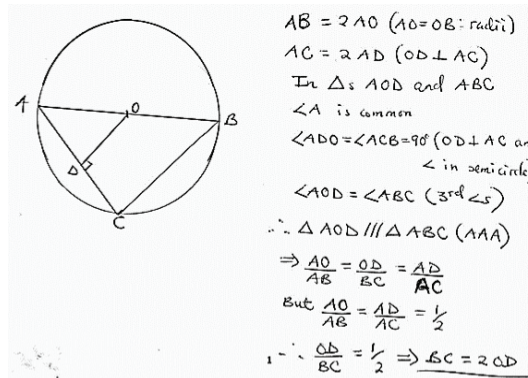 A
O
B
D
C
AB = 2AO (AO=OB: radii)
AC = 2AD (OD⊥AC)
In Δs AOD and ABC
∠A is common
∠ADO=∠ACB=90° (OD⊥AC an
∠ in semicircle
∠AOD = ∠ABC (3rd ∠s)
∴ Δ AOD /// Δ ABC (AAA)
⇒ AO/AB = OD/BC = AD/AC
But AO/AB = AD/AC = 1/2
∴ OD/BC = 1/2 ⇒ BC = 2OD